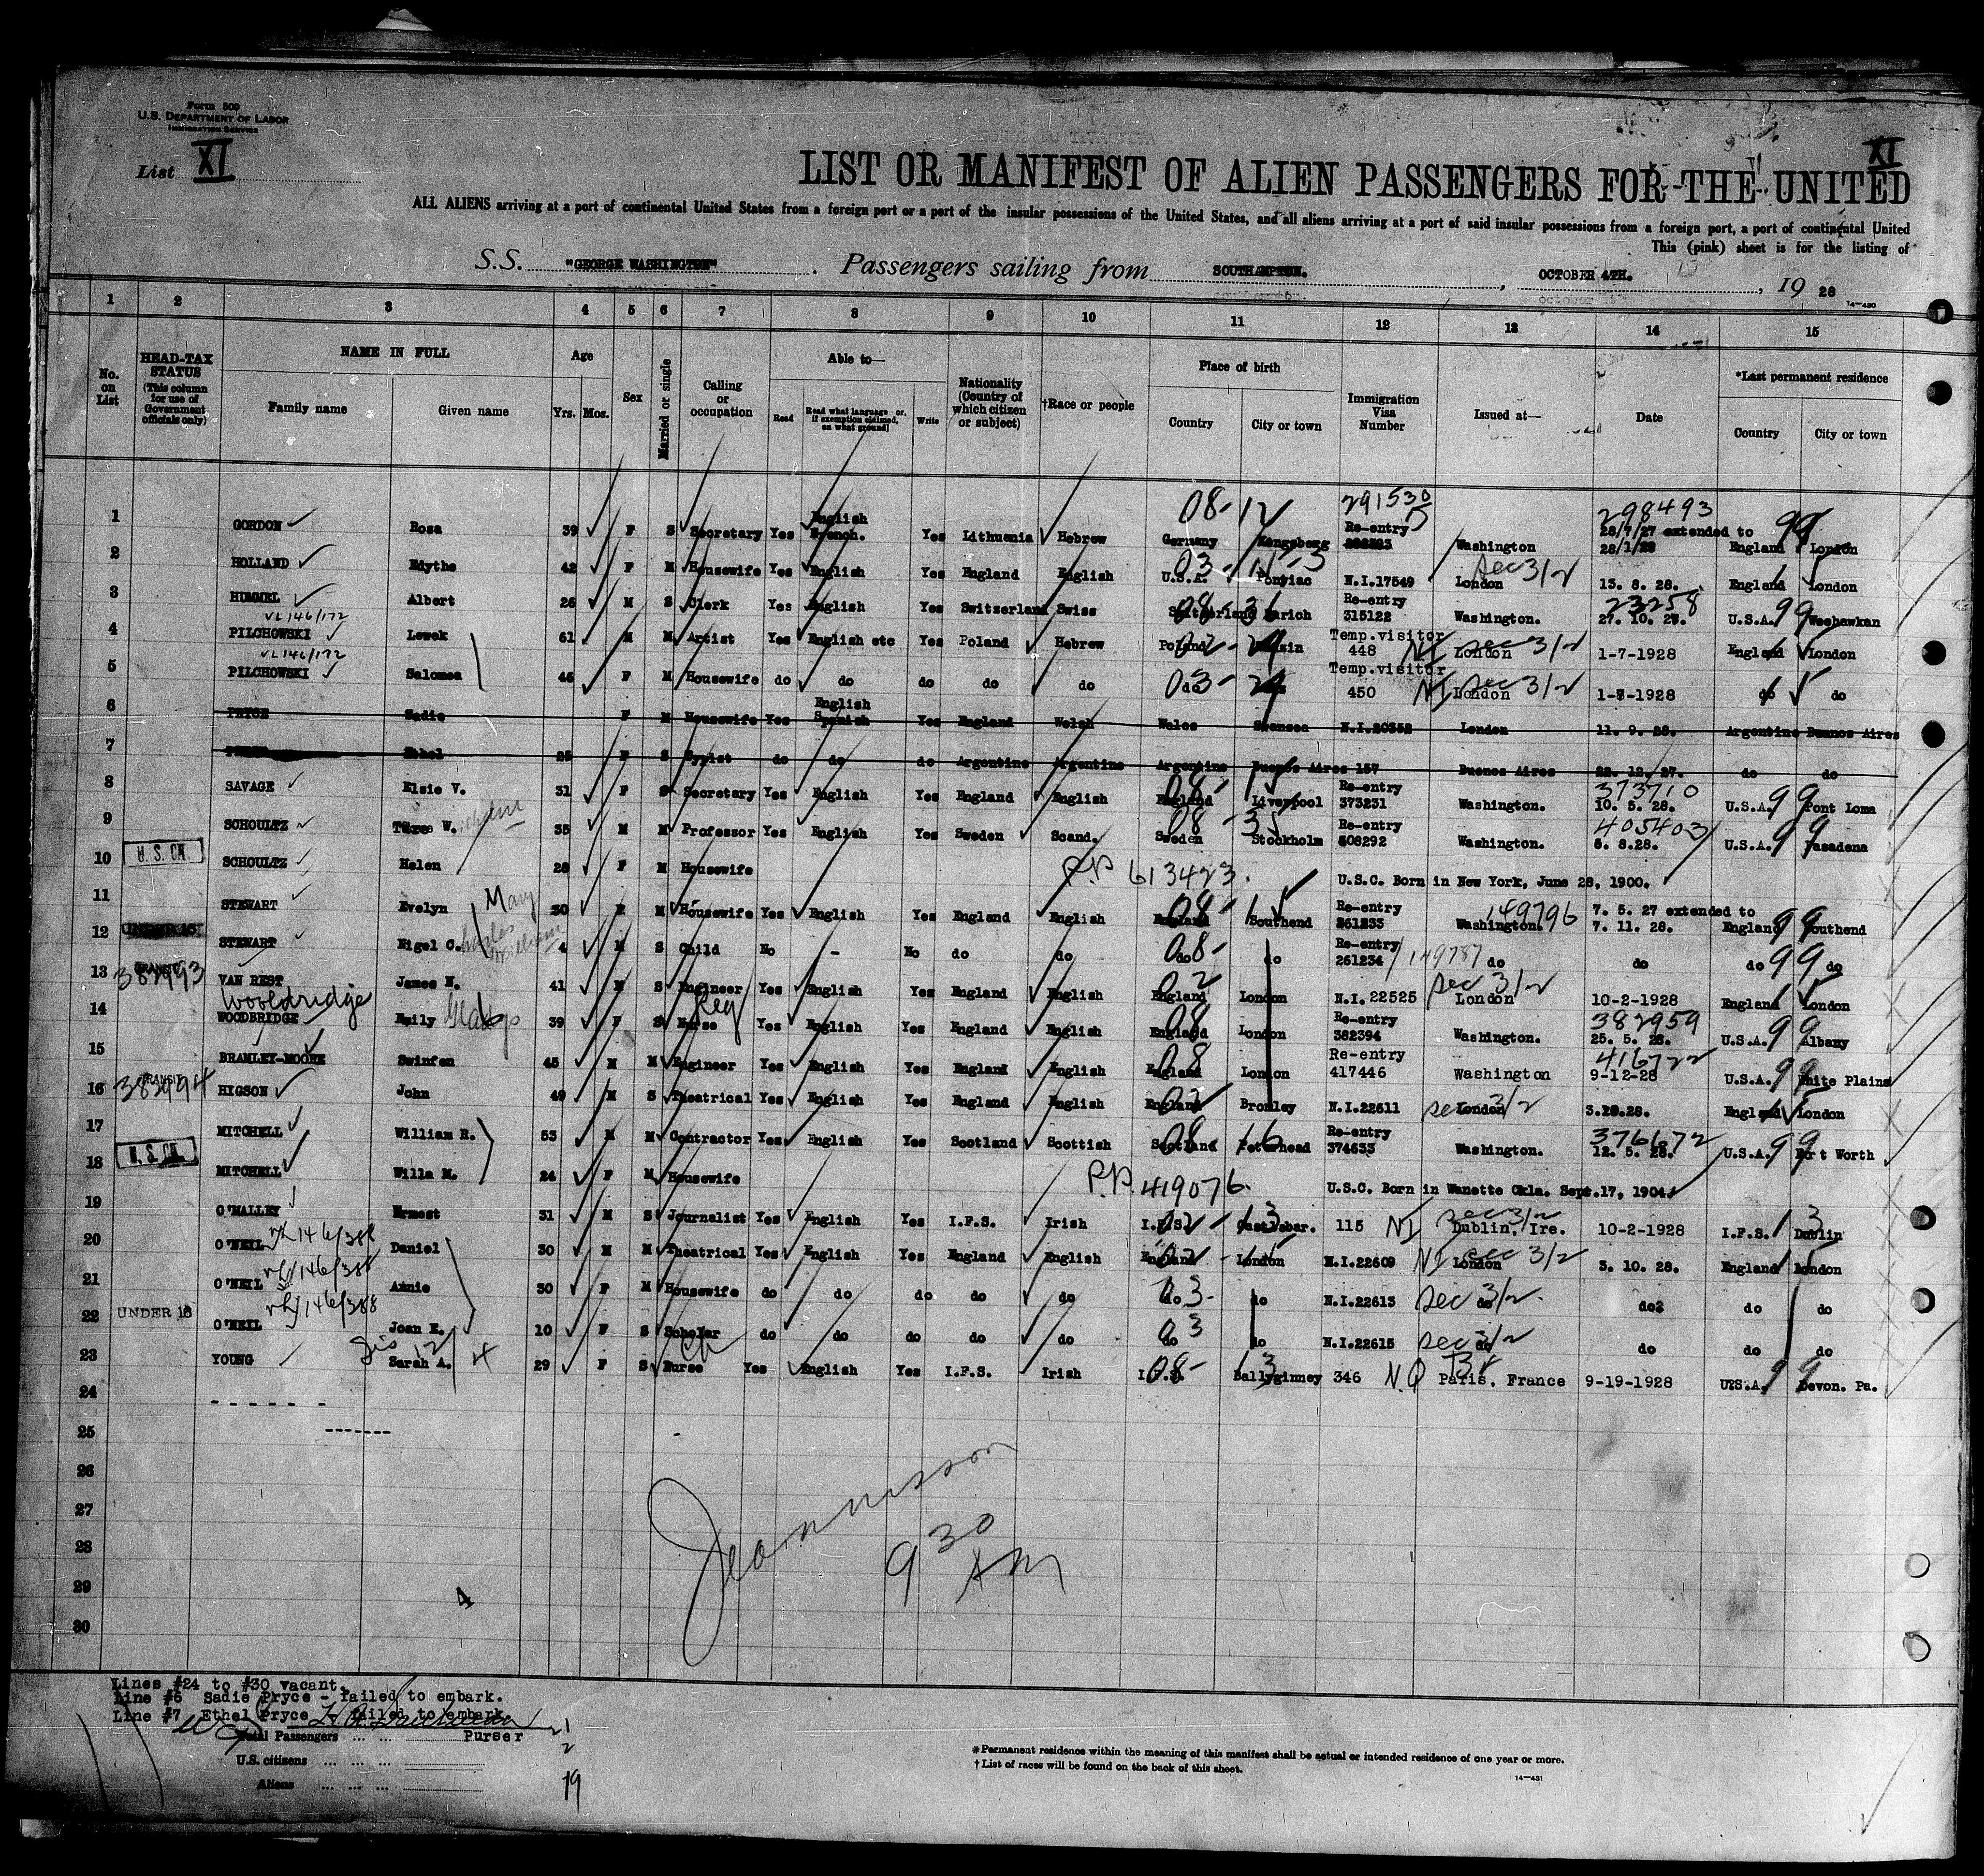 Form 500
U.S. DEPARTMENT OF LABOR
IMMIGRATION SERVICE
List XI
XI
LIST OR MANIFEST OF ALIEN PASSENGERS FOR THE UNITED
ALL ALIENS arriving at a port of continental United States from a foreign port or a port of the insular possessions of the United States, and all aliens arriving at a port of said insular possessions from a foreign port, a port of continental United
This (pink) sheet is for the listing of
S.S. "GEORGE WASHINGTON" Passengers sailing from SOUTHAMPTON, OCTOBER 4TH, 1928
14-430
1 2 3 4 5 6 7 8 9 10 11 12 13 14 15
No. on List
HEAD-TAX STATUS (This column for use of Government officials only)
NAME IN FULL
Family name Given name
Age Yrs. Mos.
Sex
Married or single
Calling or occupation
Able to—
Read Read what language or, if exemption claimed, on what ground Write
Nationality (Country of which citizen or subject)
†Race or people
Place of birth
Country City or town
Immigration Visa Number
Issued at—
Date
*Last permanent residence
Country City or town
1 GORDON Rosa 39 F S Secretary Yes English French. Yes Lithuania Hebrew 08-12 Germany 291530 Re-entry Washington 298493 28/7/27 extended to 28/1/29 England 99 London
2 HOLLAND Edythe 42 F M Housewife Yes English Yes England English 03 U.S.A. Pontiac N.I.17549 Sec 3/2 London 13. 8. 28. England London
3 HUMMEL Albert 26 M S Clerk Yes English Yes Switzerland Swiss Switzerland Zurich Re-entry 315122 Washington. 23258 27. 10. 27. U.S.A. 99 Weehawken
VL146/172
4 PILCHOWSKI Lewek 61 M M Artist Yes English etc Yes Poland Hebrew Poland Temp.visitor 448 NI Sec 3/2 London 1-7-1928 England London
VL146/172
5 PILCHOWSKI Salomea 45 F M Housewife do do do do do 03- Temp.visitor 450 NI Sec 3/2 London 1-7-1928 do do
6 PRYCE Sadie F M Housewife Yes English Spanish Yes England Welsh Wales Swansea N.I.20352 London 11. 9. 28. Argentine Buenos Aires
7 Ethel 25 F S Typist do do do Argentine Argentine Argentine Buenos Aires 157 Buenos Aires 22. 12. 27. do do
8 SAVAGE Elsie V. 31 F S Secretary Yes English Yes England English 08 England Liverpool Re-entry 373231 Washington. 373710 10. 5. 28. U.S.A. 99 Pont Loma
9 SCHOULTZ W. 35 M M Professor Yes English Yes Sweden Scand. 08-35 Sweden Stockholm Re-entry 408292 Washington. 405403 6. 8.28. U.S.A. 99 Pasadena
U. S. CN.
10 SCHOULTZ Helen 28 F M Housewife P.P. 613423. U.S.C. Born in New York, June 28, 1900.
11 STEWART Evelyn Mary 30 F M Housewife Yes English Yes England English 08- England Southend Re-entry 261233 Washington. 149796 7. 5. 27 extended to 7. 11. 28. England 99 Southend
12 STEWART Nigel C. Charles William 4 M S Child No - No do do 08- do do Re-entry 261234 149787 do do do 99 do
TRANSIT
383993
13 VAN REST James N. 41 M S Engineer Yes English Yes England English 02 England London N.I. 22525 Sec 3/2 London 10-2-1928 England London
Wooldridge
14 WOODBRIDGE Emily Gladys 39 F S Nurse Reg Yes English Yes England English 08 England London Re-entry 382394 Washington. 382959 25. 5. 28. U.S.A. 99 Albany
15 BRAMLEY-MOORE Swinfen 45 M M Engineer Yes English Yes England English 08 England London Re-entry 417446 Washington 416722 9-12-28 U.S.A. 99 White Plains
TRANSIT
383994
16 HIGSON John 49 M S Theatrical Yes English Yes England English England Bromley N.I.22611 Sec 3/2 London England London
17 MITCHELL William R. 53 M M Contractor Yes English Yes Scotland Scottish 08 16 Scotland Peterhead Re-entry 374633 Washington. 376672 12. 5. 28. U.S.A. 99 Fort Worth
U. S. CN.
18 MITCHELL Willa M. 24 F M Housewife P.P. 419076. U.S.C. Born in Wanette Okla. Sept.17, 1904.
19 O'MALLEY Ernest 31 M S Journalist Yes English Yes I.F.S. Irish I.F.S. Castlebar. 115 NI Sec 3/2 Dublin, Ire. 10-2-1928 I.F.S. Dublin
20 O'NEIL 146/388 Daniel 30 M M Theatrical Yes English Yes England English England London N.I.22609 NI Sec 3/2 London 3. 10. 28. England London
21 O'NEIL 146/388 Annie 30 F M Housewife do do do do do 03- do do N.I.22613 Sec 3/2. do do do do
UNDER 16
22 O'NEIL 146/388 Joan E. 10 F S Scholar do do do do do 03 do do N.I.22615 Sec 3/2 do do do do
23 YOUNG Sarah A. 29 F S Nurse Yes English Yes I.F.S. Irish 08- Ballyginney 346 N.Q Paris, France 9-19-1928 U.S.A. 99 Devon. Pa.
24
25
26
27
28
29
30
9 30 AM
4
Lines #24 to #30 vacant.
Line #6 Sadie Pryce - failed to embark.
Line #7 Ethel Pryce - failed to embark.
Purser
Total Passengers 21
U.S. citizens 2
Aliens 19
*Permanent residence within the meaning of this manifest shall be actual or intended residence of one year or more.
†List of races will be found on the back of this sheet.
14-431